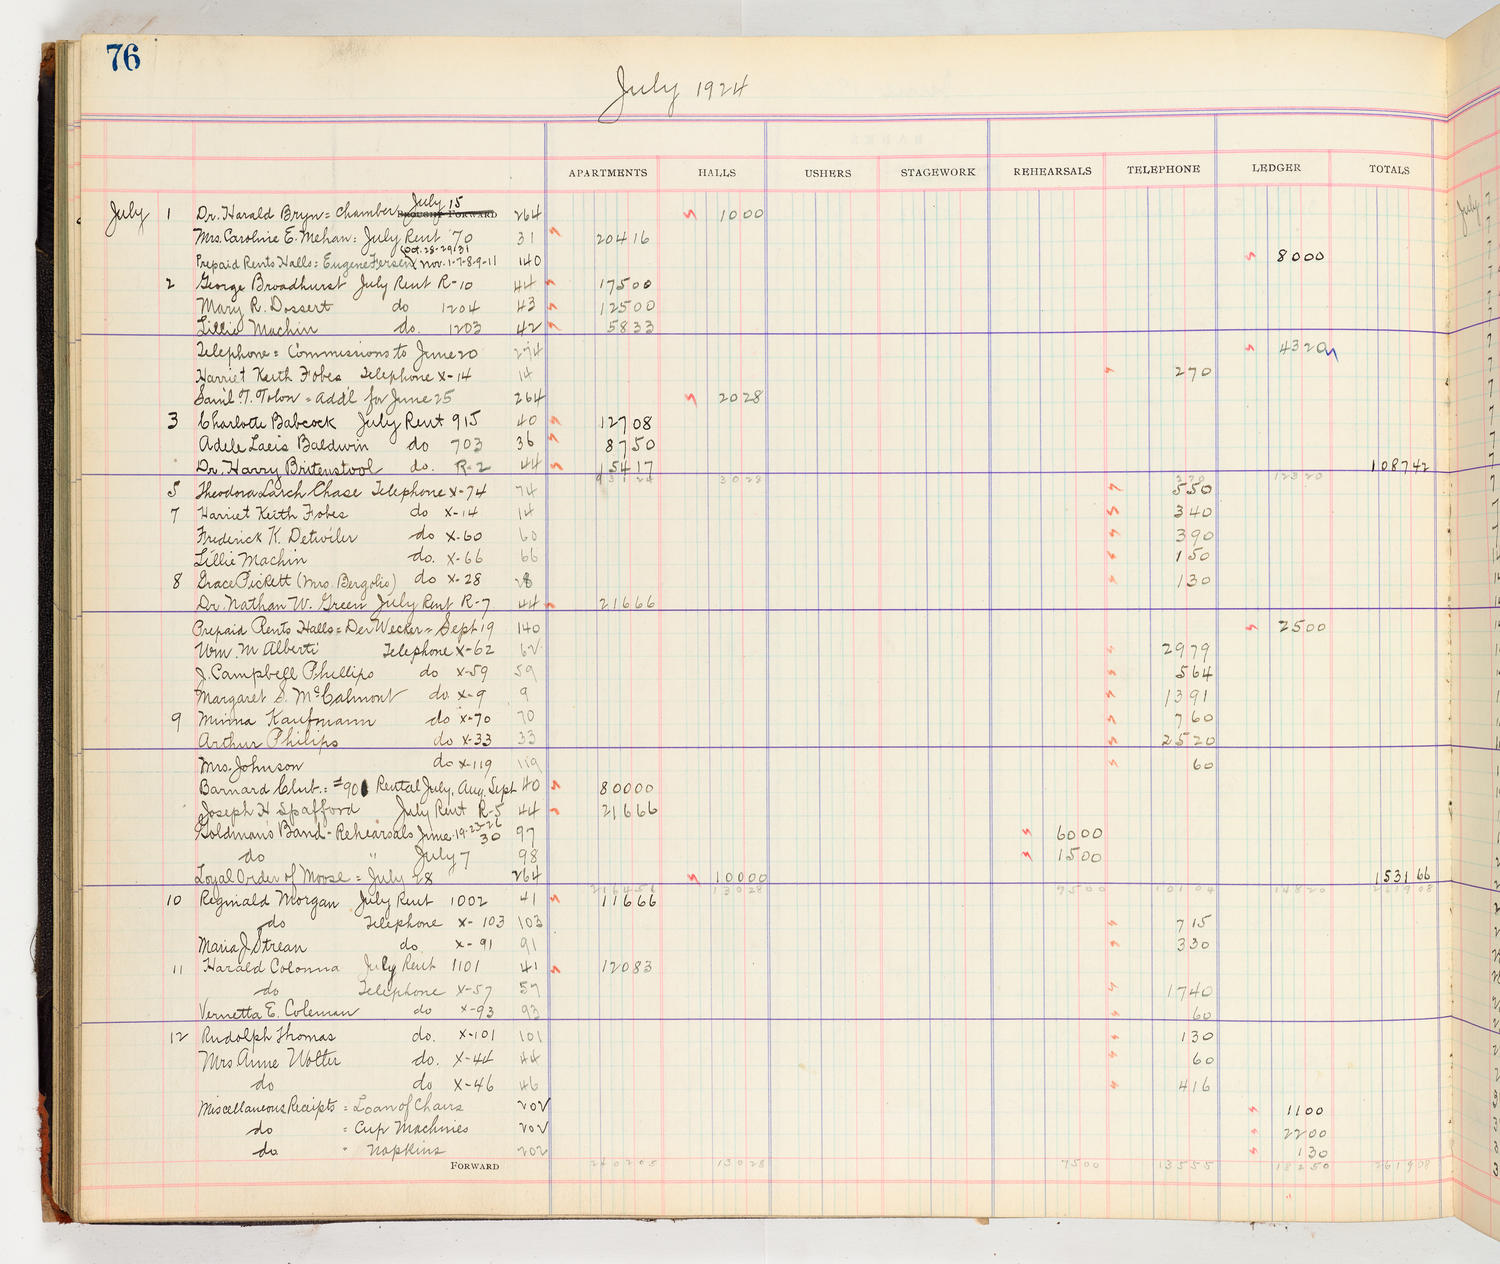 76
July 1924
APARTMENTS HALLS USHERS STAGEWORK REHEARSALS TELEPHONE LEDGER TOTALS
July 15
July 1 Dr. Harald Bryn = Chamber BROUGHT FORWARD 264 1000
Mrs. Caroline E. Mehan: July Rent 70 31 20416
Oct. 28-29/31
Prepaid Rents Halls = Eugene Fersen Nov. 1-7-8-9-11 140 8000
2 George Broadhurst July Rent R-10 44 17500
Mary R. Dossert do 1204 43 12500
Lillie Machin do. 1203 42 5833
Telephone = Commissions to June 20 274 4320
Harriet Keith Fobes Telephone X-14 14 270
Saml. T. Tolon = Add'l for June 25 264 2028
3 Charlotte Babcock July Rent 915 40 12708
Adele Laeis Baldwin do 703 36 8750
Dr. Harry Britenstool do. R-2 44 15417 108742
93124 3028 270 12320
5 Theodora Larch Chase Telephone X-74 74 550
7 Harriet Keith Fobes do X-14 14 340
Frederick K. Detwiler do X-60 60 390
Lillie Machin do. X-66 66 150
8 Grace Pickett (Mrs. Bergolio) do X-28 28 130
Dr. Nathan W. Green July Rent R-7 44 21666
Prepaid Rents Halls = Der Wecker = Sept 19 140 2500
Wm. M Alberti Telephone X-62 62 2979
J. Campbell Phillips do X-59 59 564
Margaret S. McCalmont do. X-9 9 1391
9 Minna Kaufmann do X-70 70 760
Arthur Philips do X-33 33 2520
Mrs. Johnson do X-119 119 60
Barnard Club.: #901 Rental July, Aug, Sept 40 80000
Joseph H Spafford July Rent R-5 44 21666
Goldman's Band - Rehearsals June 19-23-26 30 97 6000
do " July 7 98 1500
Loyal Order of Moose = July 28 264 10000 153166
216456 13028 7500 10104 14820 261908
10 Reginald Morgan July Rent 1002 41 11666
do Telephone X-103 103 715
Maria J. Strean do X-91 91 330
11 Harald Colonna July Rent 1101 41 12083
do Telephone X-57 57 1740
Vernetta E. Coleman do X-93 93 60
12 Rudolph Thomas do. X-101 101 130
Mrs Anne Wolter do. X-44 44 60
do do X-46 46 416
Miscellaneous Receipts = Loan of Chairs 202 1100
do = Cup Machines 202 2200
do " Napkins 202 130
FORWARD 240205 13028 7500 13555 18250 261908
July